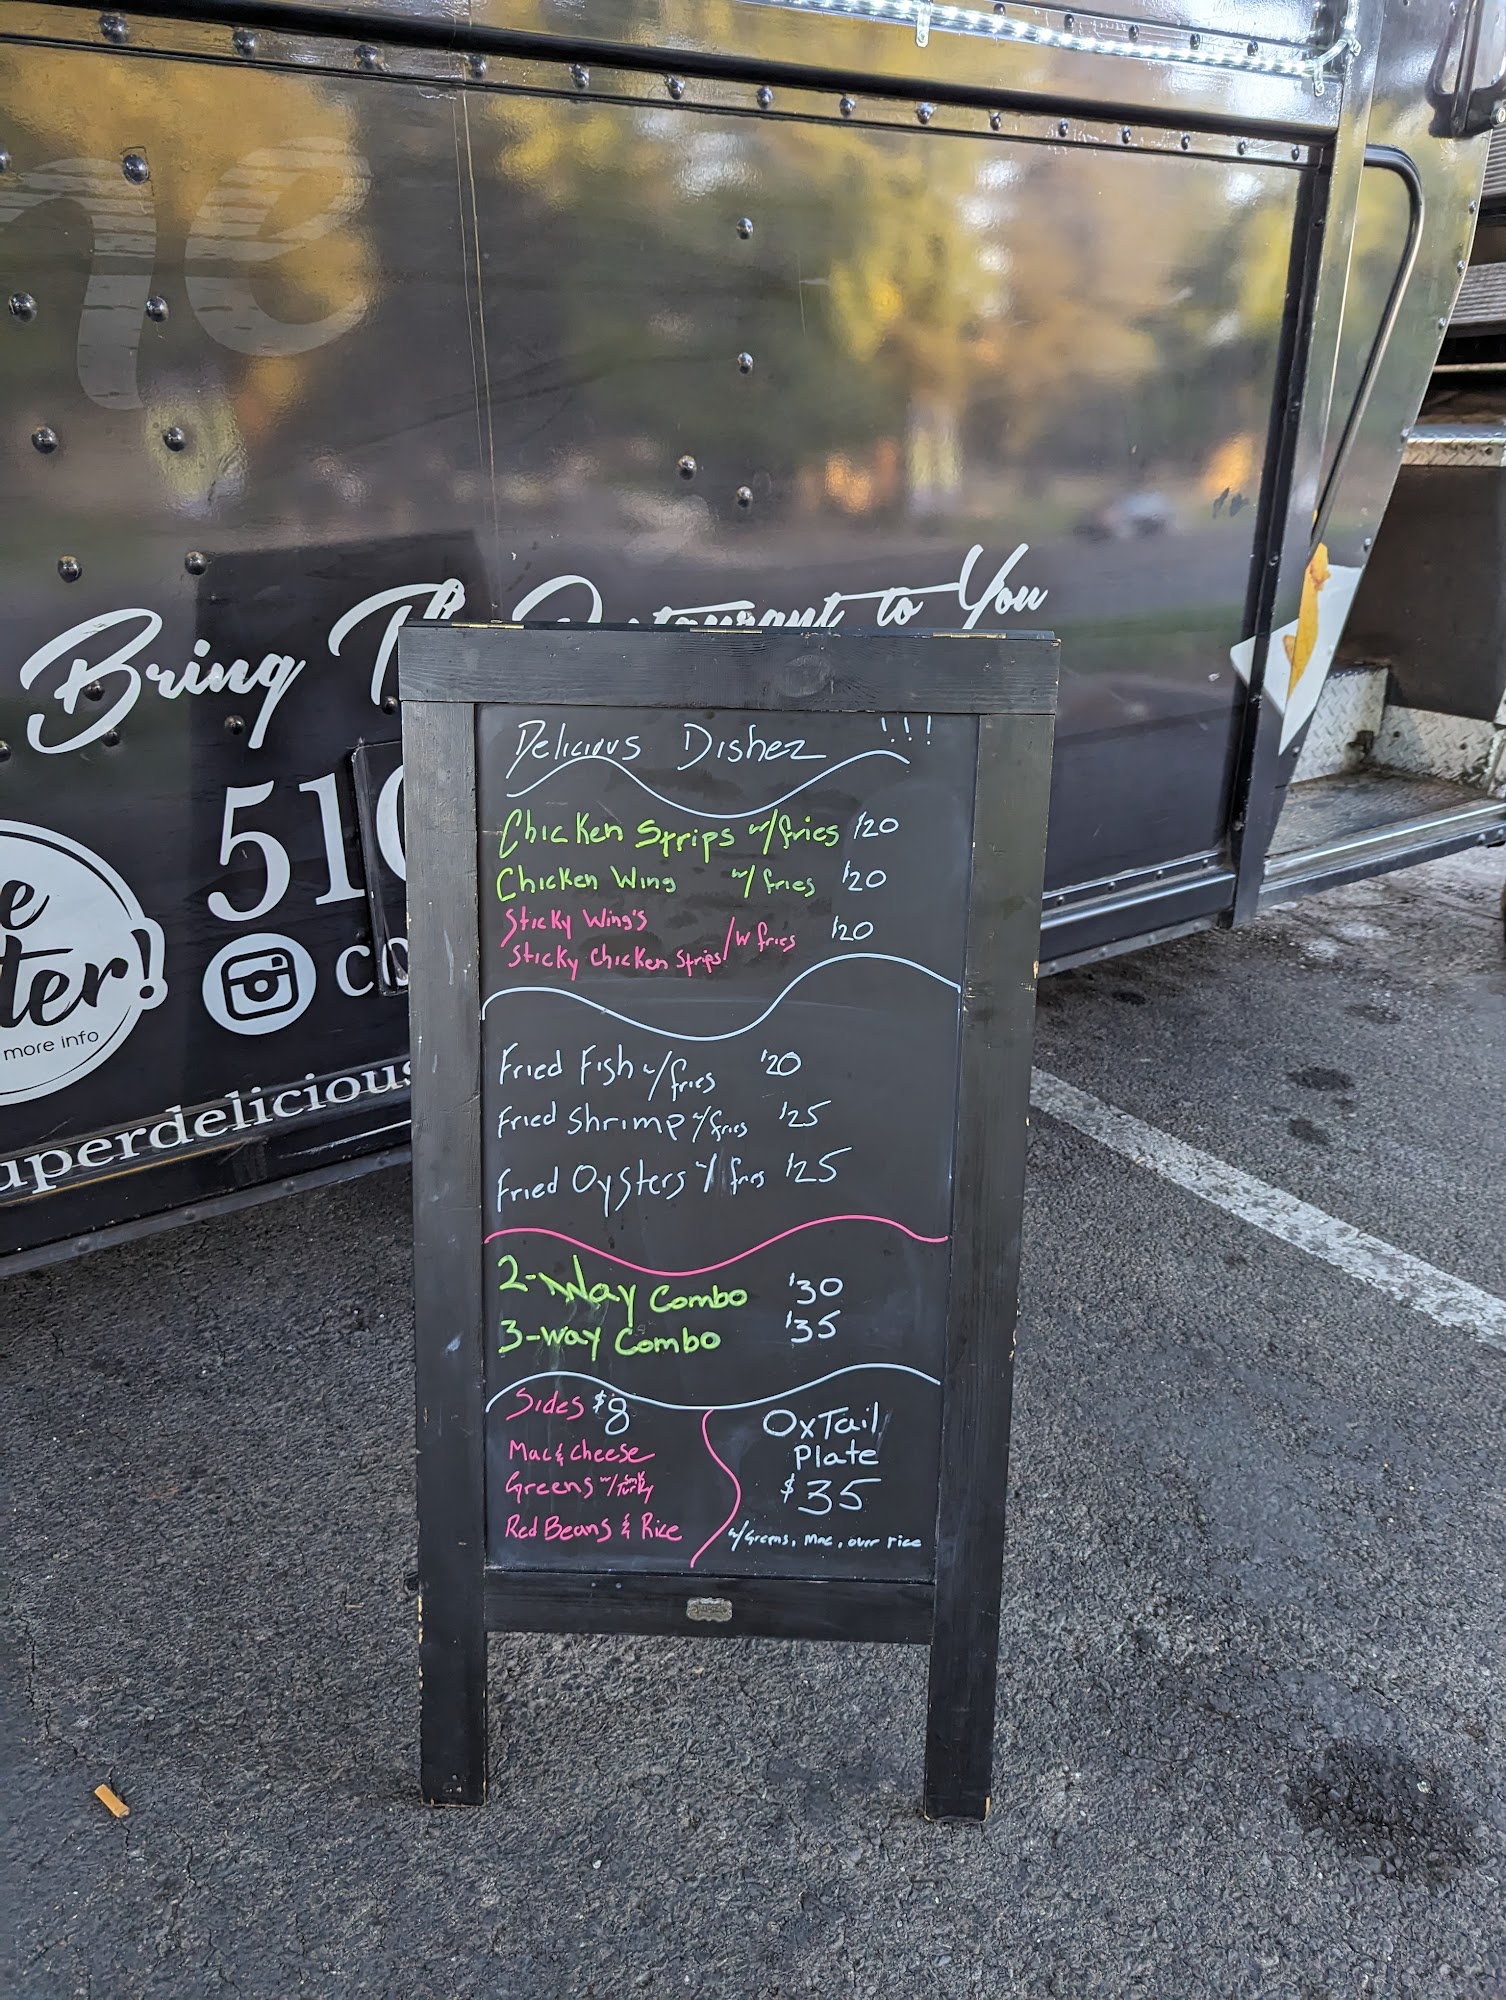 Bring
to You
510
more info
Delicious Dishez !!!
Chicken Strips w/fries $20
Chicken Wing w/ fries $20
Sticky Wing's
Sticky Chicken Strips / w fries $20
Fried Fish w/fries $20
Fried Shrimp w/fries $25
Fried Oysters w/ fries $25
2-Way Combo $30
3-way Combo $35
Sides $8
Mac & Cheese
Greens w/ Smk Turky
Red Beans & Rice
OxTail
Plate
$35
w/Greens, Mac, over rice